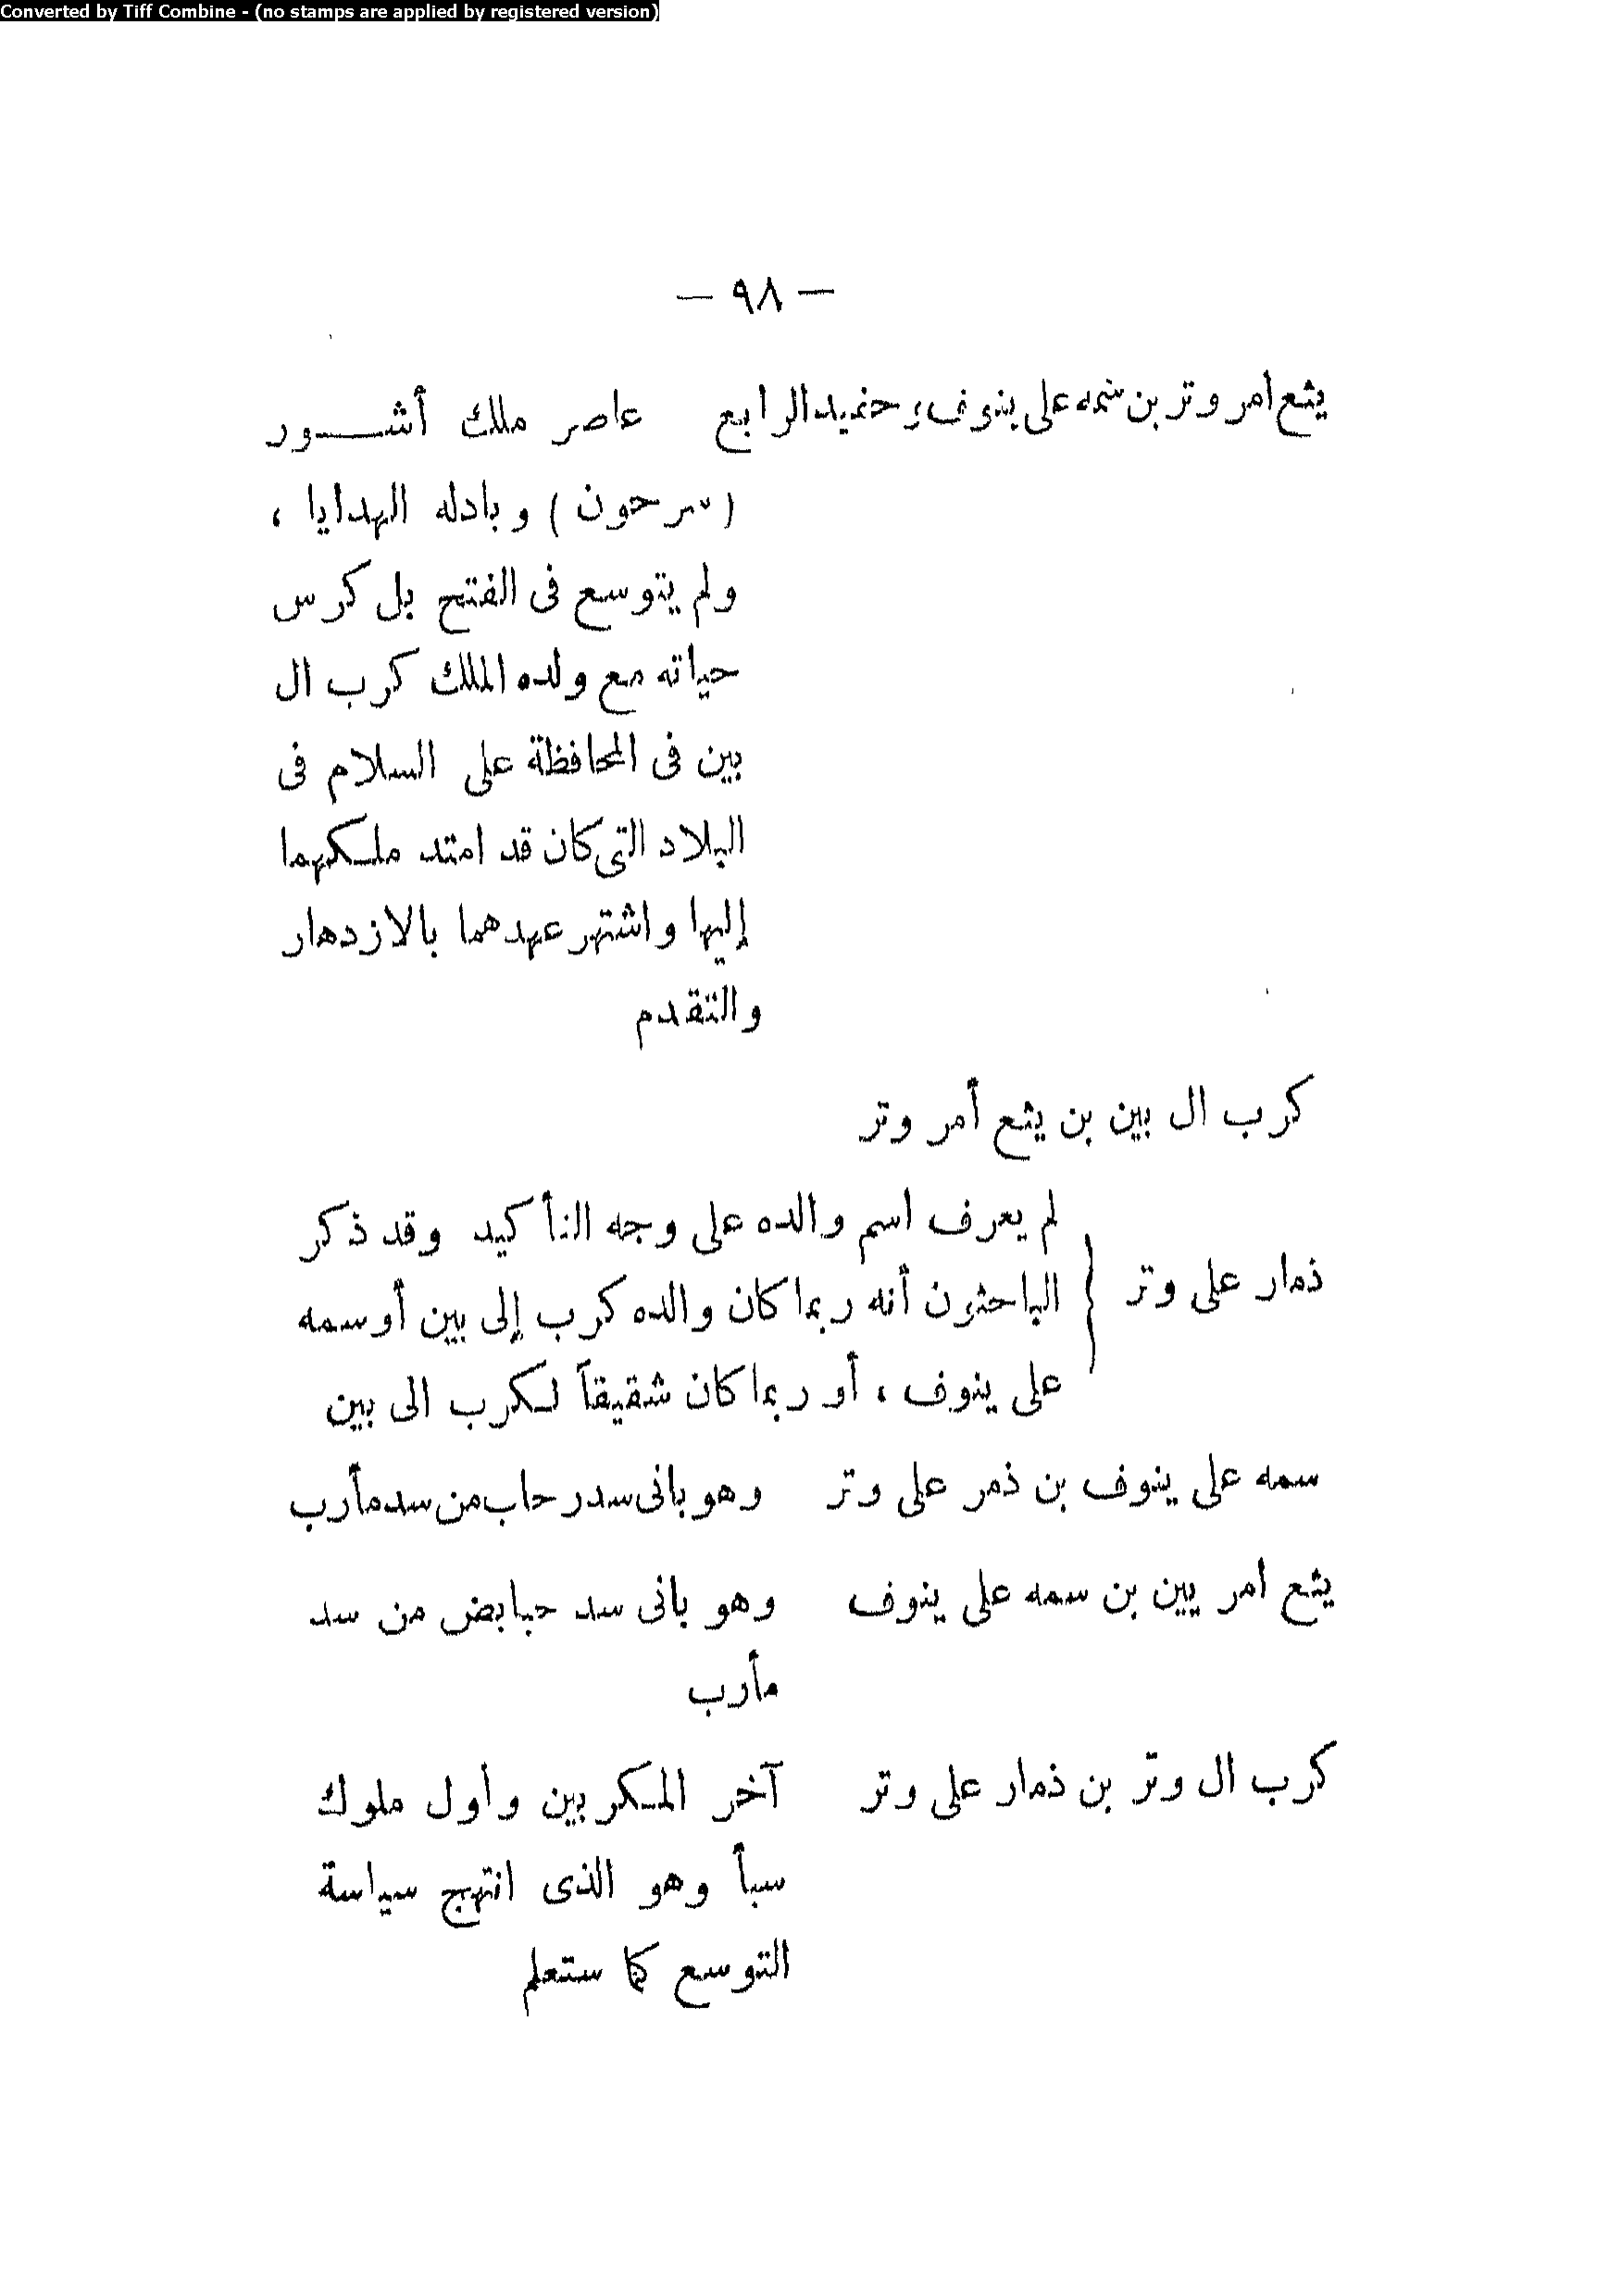 Converted by Tiff Combine - (no stamps are applied by registered version)
— ٩٨ —
يثع أمر وتر بن سمه على ينوف، حفيد الرابع عاصر ملك أشـــور
(سرحون) وبادله الهدايا ،
ولم يتوسع فى الفتح بل كرس
حياته مع ولده الملك كرب ال
بين فى المحافظة على السلام فى
البلاد التى كان قد امتد ملكهما
إليها واشتهر عهدهما بالازدهار
والتقدم
كرب ال بين بن يثع أمر وتر
لم يعرف اسم والده على وجه التأكيد وقد ذكر
ذمار على وتر } الباحثون أنه ربما كان والده كرب إلى بين أو سمه
على ينوف ، أو ربما كان شقيقاً لكرب الى بين
سمه على ينوف بن ذمر على وتر وهو بانى سد رحاب من سد مأرب
يثع امر بيين بن سمه على ينوف وهو بانى سد حبابض من سد
مأرب
كرب ال وتر بن ذمار على وتر آخر المكربين وأول ملوك
سبأ وهو الذى انتهج سياسة
التوسع كما ستعلم